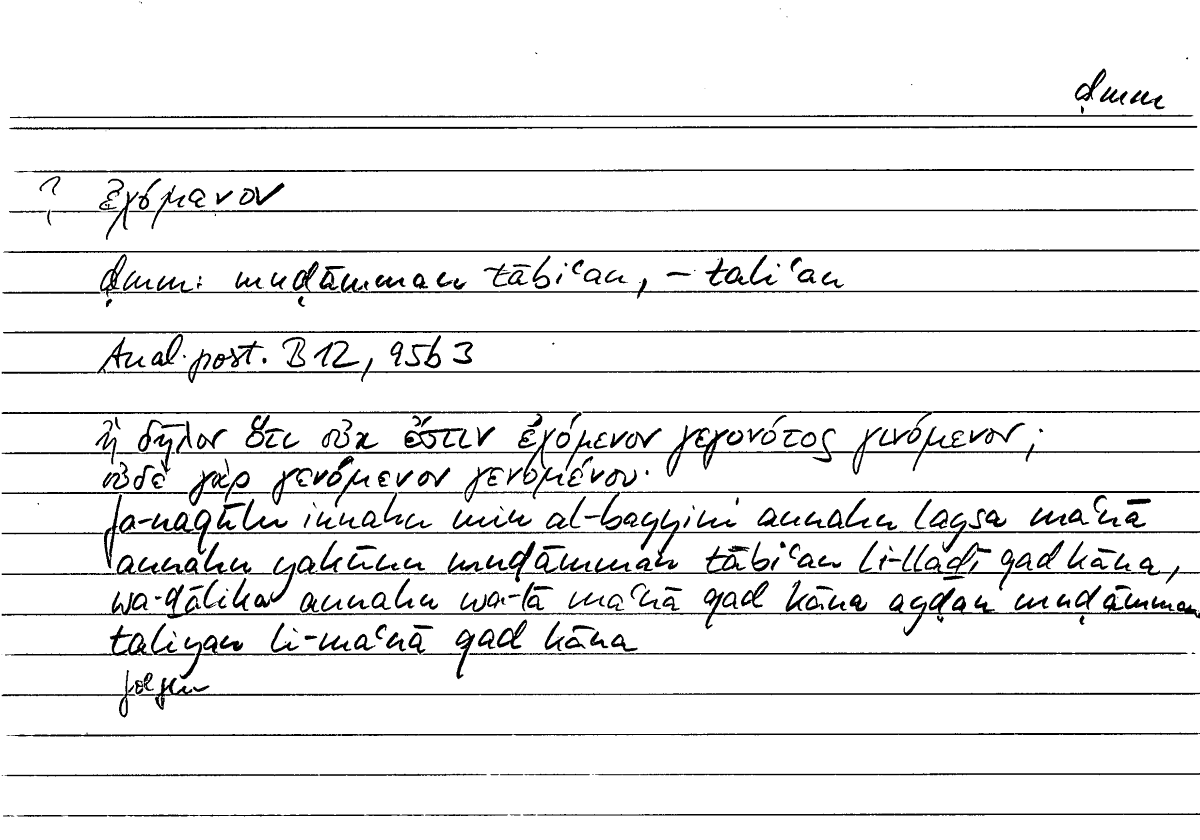 ḍmm
? ἐχόμανον
ḍmm: muḍāmman tābiʿan, – taliʿan
Anal. post. B 12, 95b 3
ἢ δῆλον ὅτι οὐκ ἔστιν ἐχόμενον γεγονότος γινόμενον;
οὐδὲ γὰρ γενόμενον γενομένου·
fa-naqūlu innahu min al-bayyini annahu laysa maʿnā
annahu yakūnu muḍāmman tābiʿan li-llaḏī qad kāna,
wa-ḏālika annahu wa-lā maʿnā qad kāna ayḍan muḍāmman
taliyan li-maʿnā qad kāna